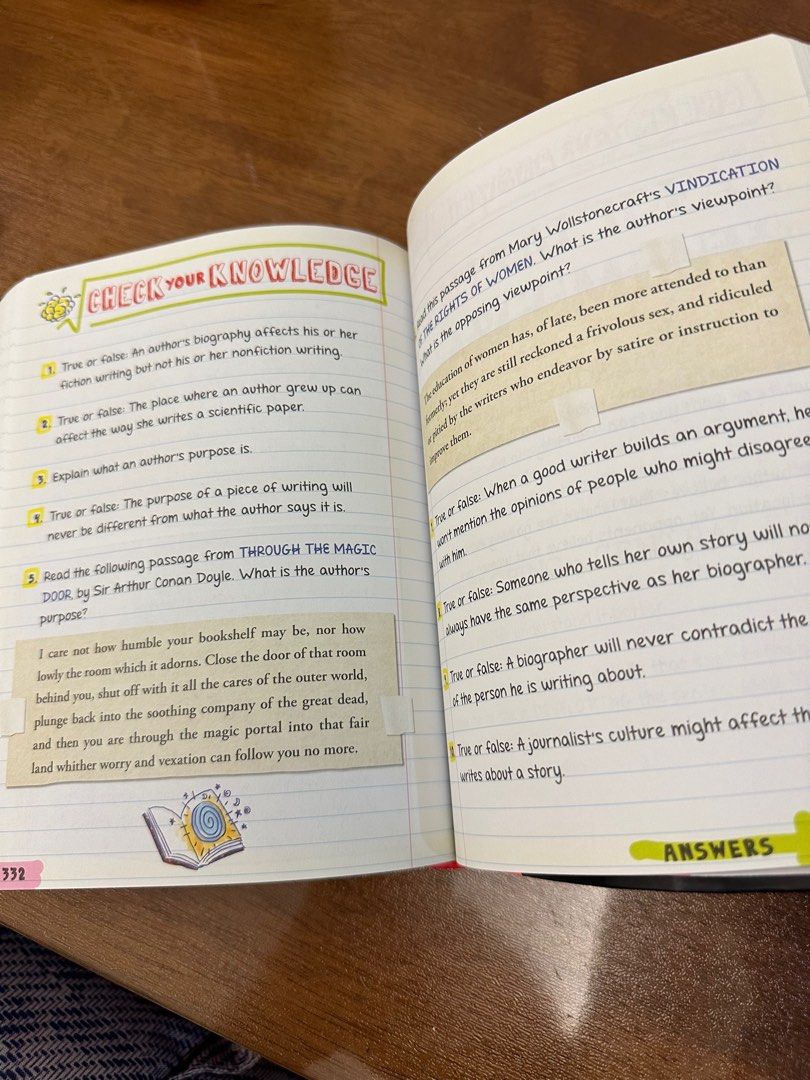 CHECK YOUR KNOWLEDGE
1. True or false: An author's biography affects his or her
fiction writing but not his or her nonfiction writing.
2. True or false: The place where an author grew up can
affect the way she writes a scientific paper.
3. Explain what an author's purpose is.
4. True or false: The purpose of a piece of writing will
never be different from what the author says it is.
5. Read the following passage from THROUGH THE MAGIC
DOOR, by Sir Arthur Conan Doyle. What is the author's
purpose?
I care not how humble your bookshelf may be, nor how
lowly the room which it adorns. Close the door of that room
behind you, shut off with it all the cares of the outer world,
plunge back into the soothing company of the great dead,
and then you are through the magic portal into that fair
land whither worry and vexation can follow you no more.
332
this passage from Mary Wollstonecraft's VINDICATION
OF THE RIGHTS OF WOMEN. What is the author's viewpoint?
What is the opposing viewpoint?
The education of women has, of late, been more attended to than
formerly; yet they are still reckoned a frivolous sex, and ridiculed
or pitied by the writers who endeavor by satire or instruction to
improve them.
True or false: When a good writer builds an argument, he
won't mention the opinions of people who might disagree
with him.
True or false: Someone who tells her own story will no
always have the same perspective as her biographer.
True or false: A biographer will never contradict the
of the person he is writing about.
True or false: A journalist's culture might affect th
writes about a story.
ANSWERS